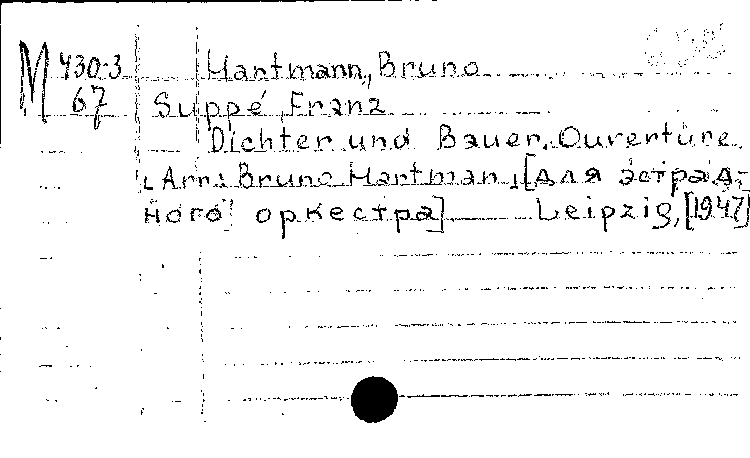 М 430-3 Hartmann, Bruno
67 Suppé, Franz
Dichter und Bauer. Ouvertüre.
Arr.: Bruno Hartman, [для эстрад-
ного оркестра] Leipzig, [1947]